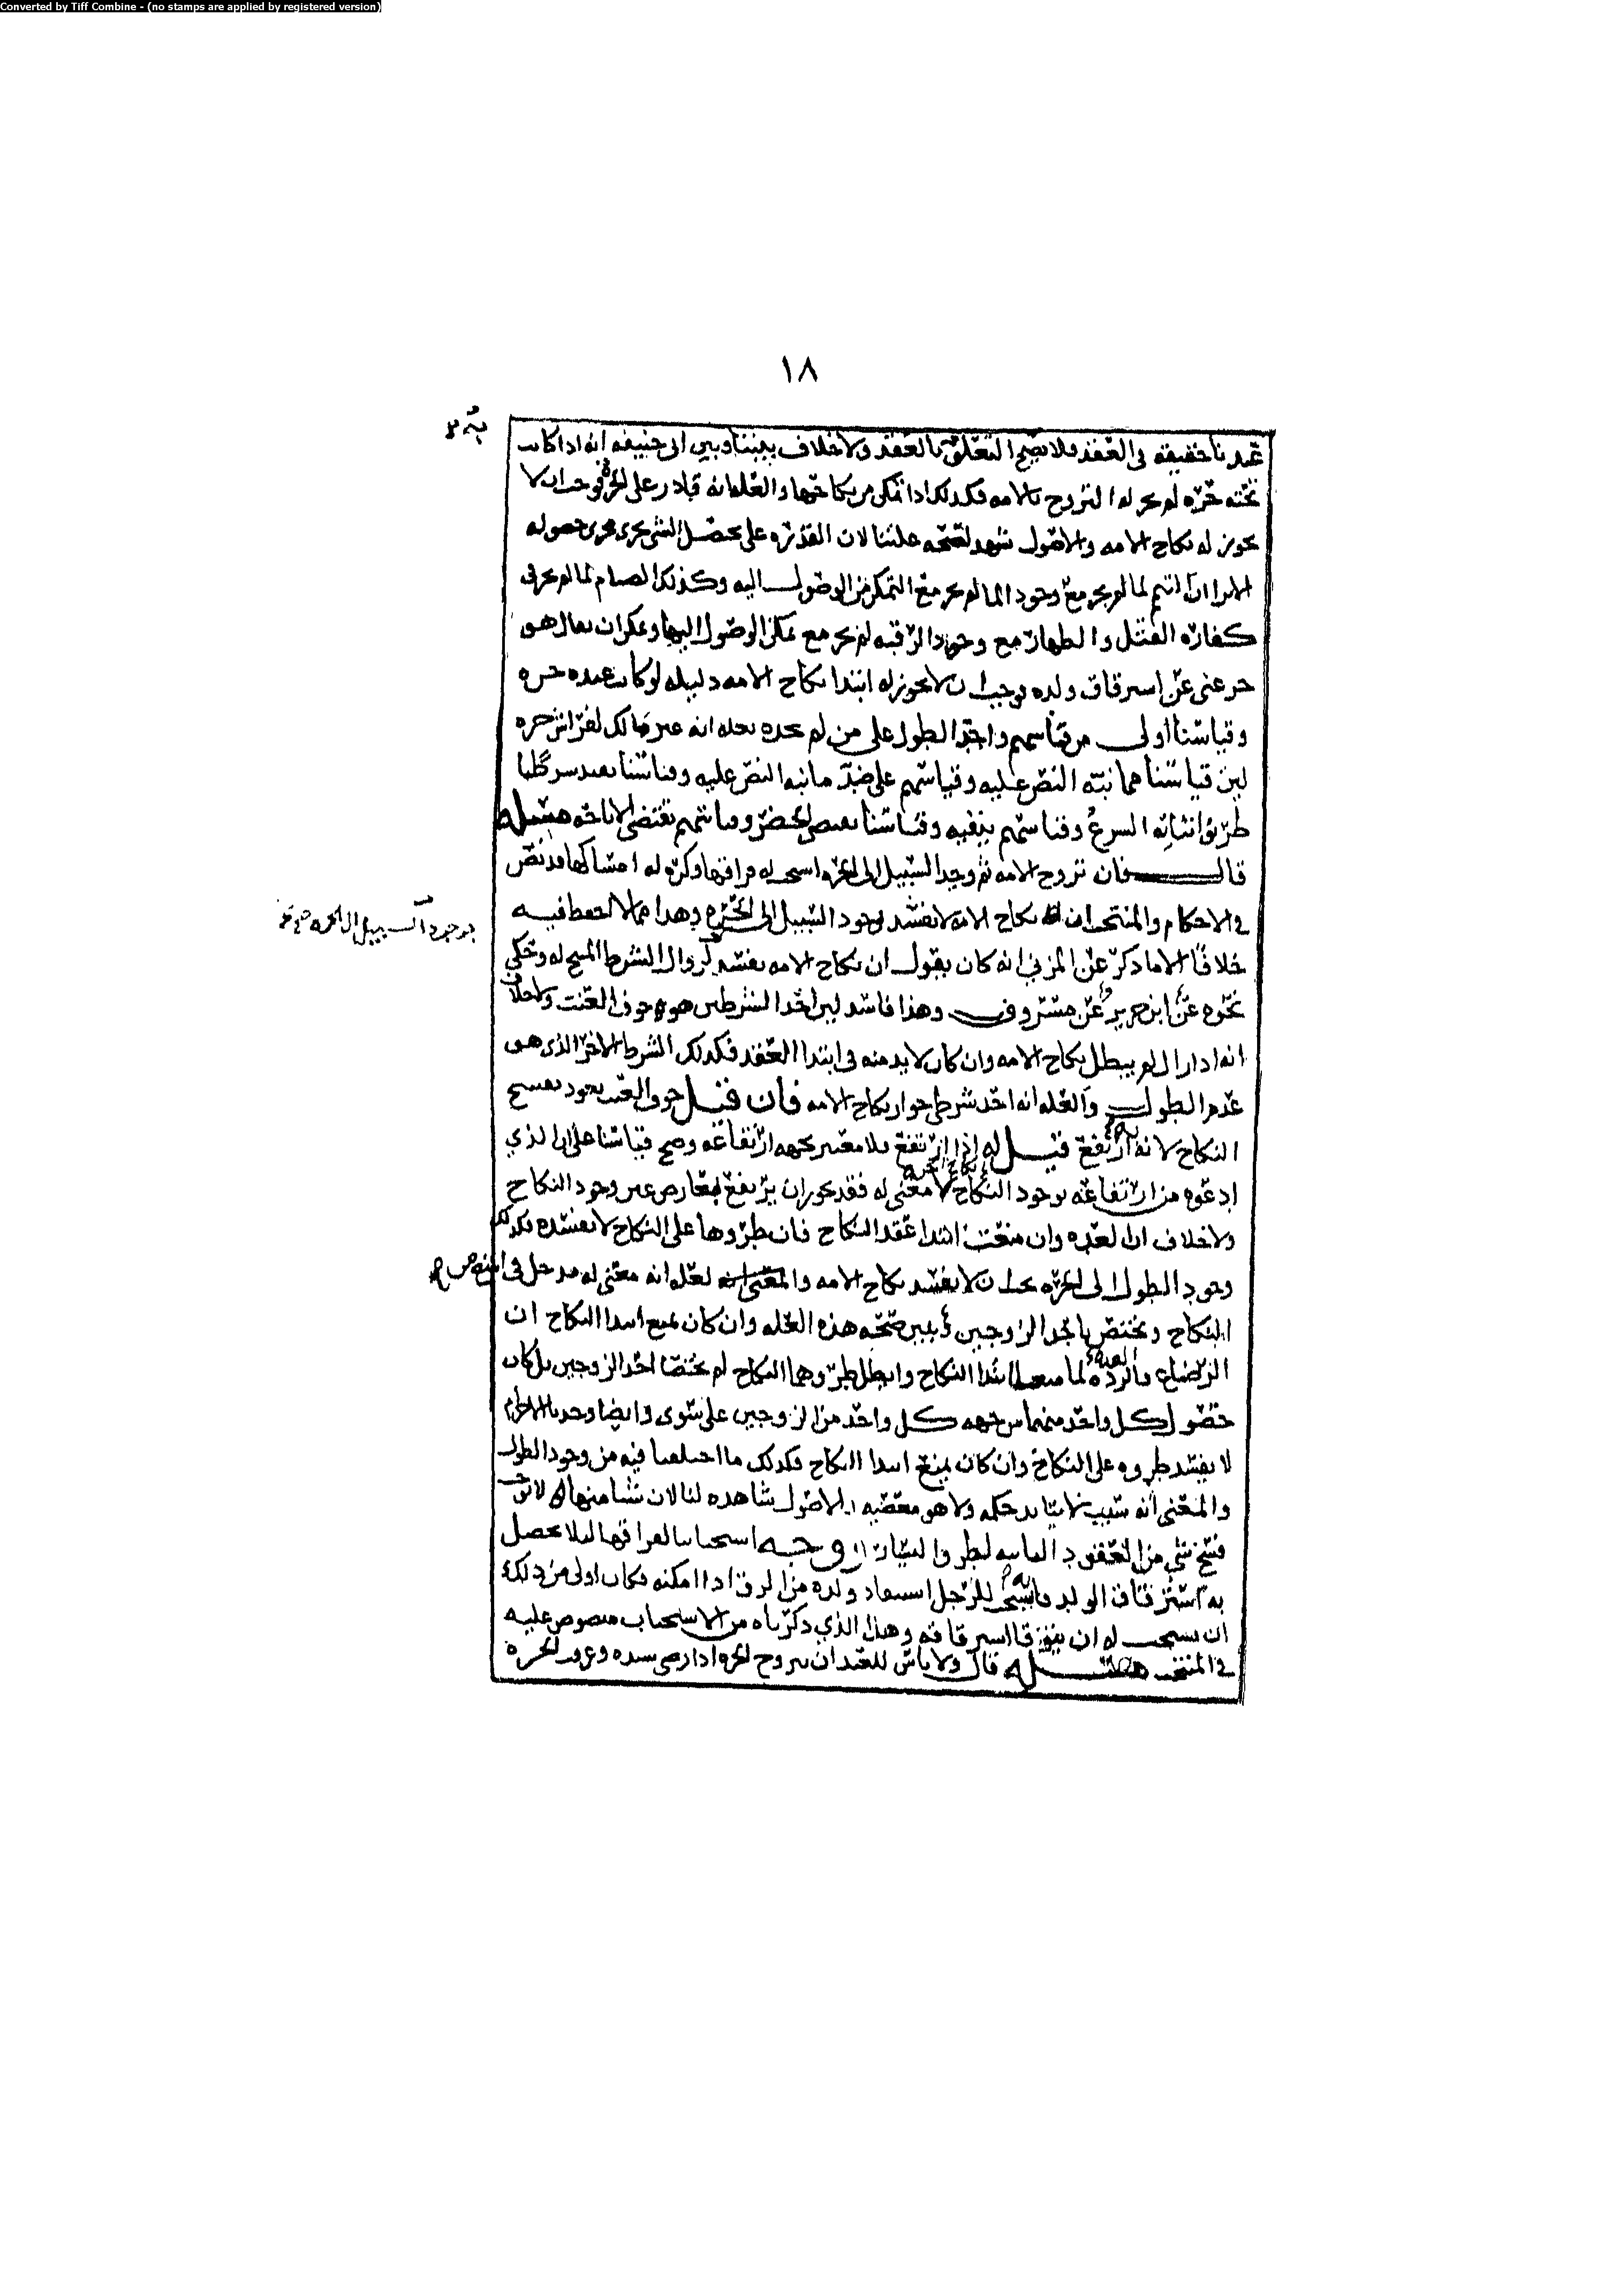 Converted by Tiff Combine - (no stamps are applied by registered version)
١٨
عندنا حقيقه في العقد فلا يصح التعلق بالعقد ولا خلاف بيننا وبين ابي حنيفه انه اذا كانت
تحته حره لم يجز له التزوج بالامه فكذلك اذا تمكن من نكاحها والعله انه قادر على الحره فوجب ان لا
يجوز له نكاح الامه والاصول تشهد لصحه علتنا لان القدره على تحصيل الشي يجري مجرى حصوله
الا ترا ان التيمم لما لم يجز مع وجود الما لم يجز مع التمكن من الوصول اليه وكذلك الصيام لما لم يجز في
كفاره القتل والظهار مع وجود الرقبه لم يجز مع تمكن الوصول اليها ويمكن ان يقال هو
حر غني عن استرقاق ولده فوجب ان لا يجوز له ابتدا نكاح الامه دليله لو كانت عنده حره
وقياسنا اولى من قياسهم واجد الطول على من لم يجده بعله انه غير مالك لفراش حره
لان قياسنا مما نبه النص عليه وقياسهم على ضد ما نبه النص عليه وقياسنا يفيد شرعيا
طريق اثباته الشرع وقياسهم ينفيه وقياسنا يقتضي الحضر وقياسهم يقتضي الاباحه مسله
قال فان تزوج الامه ثم وجد السبيل الى الحره استحب له فراقها وكره له امساكها قد نص
في الاحكام والمنتخب ان نكاح الامه لا يفسد لوجود السبيل الى الحره وهذا مما لا احفظ فيه
بوجود السبيل الى الحره
خلافا الا ما ذكر عن المزني انه كان يقول ان نكاح الامه يفسد لزوال الشرط المبيح له وحكي
نحوه عن ابن جرير وعن مسروق وهذا فاسد لان احد الشرطين هو خوف العنت ولا خلاف
انه اذا زال لم يبطل نكاح الامه وان كان لا بد منه في ابتدا العقد فكذلك الشرط الاخر الذي هو
عدم الطول والعله انه احد شرطي جواز نكاح الامه فان قيل خوف العنت يعود بفسخ
النكاح لانه به ارتفع قيل له اذا ارتفع فلا معتبر بجهه ارتفاعه وصح قياسنا على ان الذي
ادعوه من ارتفاعه بوجود النكاح لا معنى له فقد يجوز ان يرتفع لعارض غير وجود النكاح
ولا خلاف ان العده وان منعت ابتدا عقد النكاح فان طروها على النكاح لا يفسده فكذلك
وجود الطول الى الحره يجب ان لا يفسد نكاح الامه لعله انه معنى له مدخل في المنع من
النكاح ويختص باحد الزوجين يبين صحه هذه العله وان كان يمنع ابتدا النكاح ان
الرضاع والرده لما منعا ابتدا النكاح وابطل طروهما النكاح لم يختصا احد الزوجين بل كان
حصول كل واحد منهما من جهه كل واحد من الزوجين على سوى وايضا وجدنا الاحرام
لا يفسد طروه على النكاح وان كان يمنع ابتدا النكاح فكذلك ما اختلفنا فيه من وجود الطول
والمعنى انه سبب لا يتابد حكمه ولا هو الاصول شاهده لنا لان شيا منها لا يوجب
فسخ شي من العقود الثابته لطرو اليسار وجه استحبابنا لفراقها ليلا يحصل
به استرقاق الولد فاستحب للرجل استنقاذ ولده من الرق اذا امكنه فكان اولى من ذلك
ان يستحب له ان استرقاقه وهذا الذي ذكرناه من الاستحباب منصوص عليه
في المنتخب مسله قال ولا باس للعبد ان يتزوج الحره اذا رضي سيده وعرفت الحره